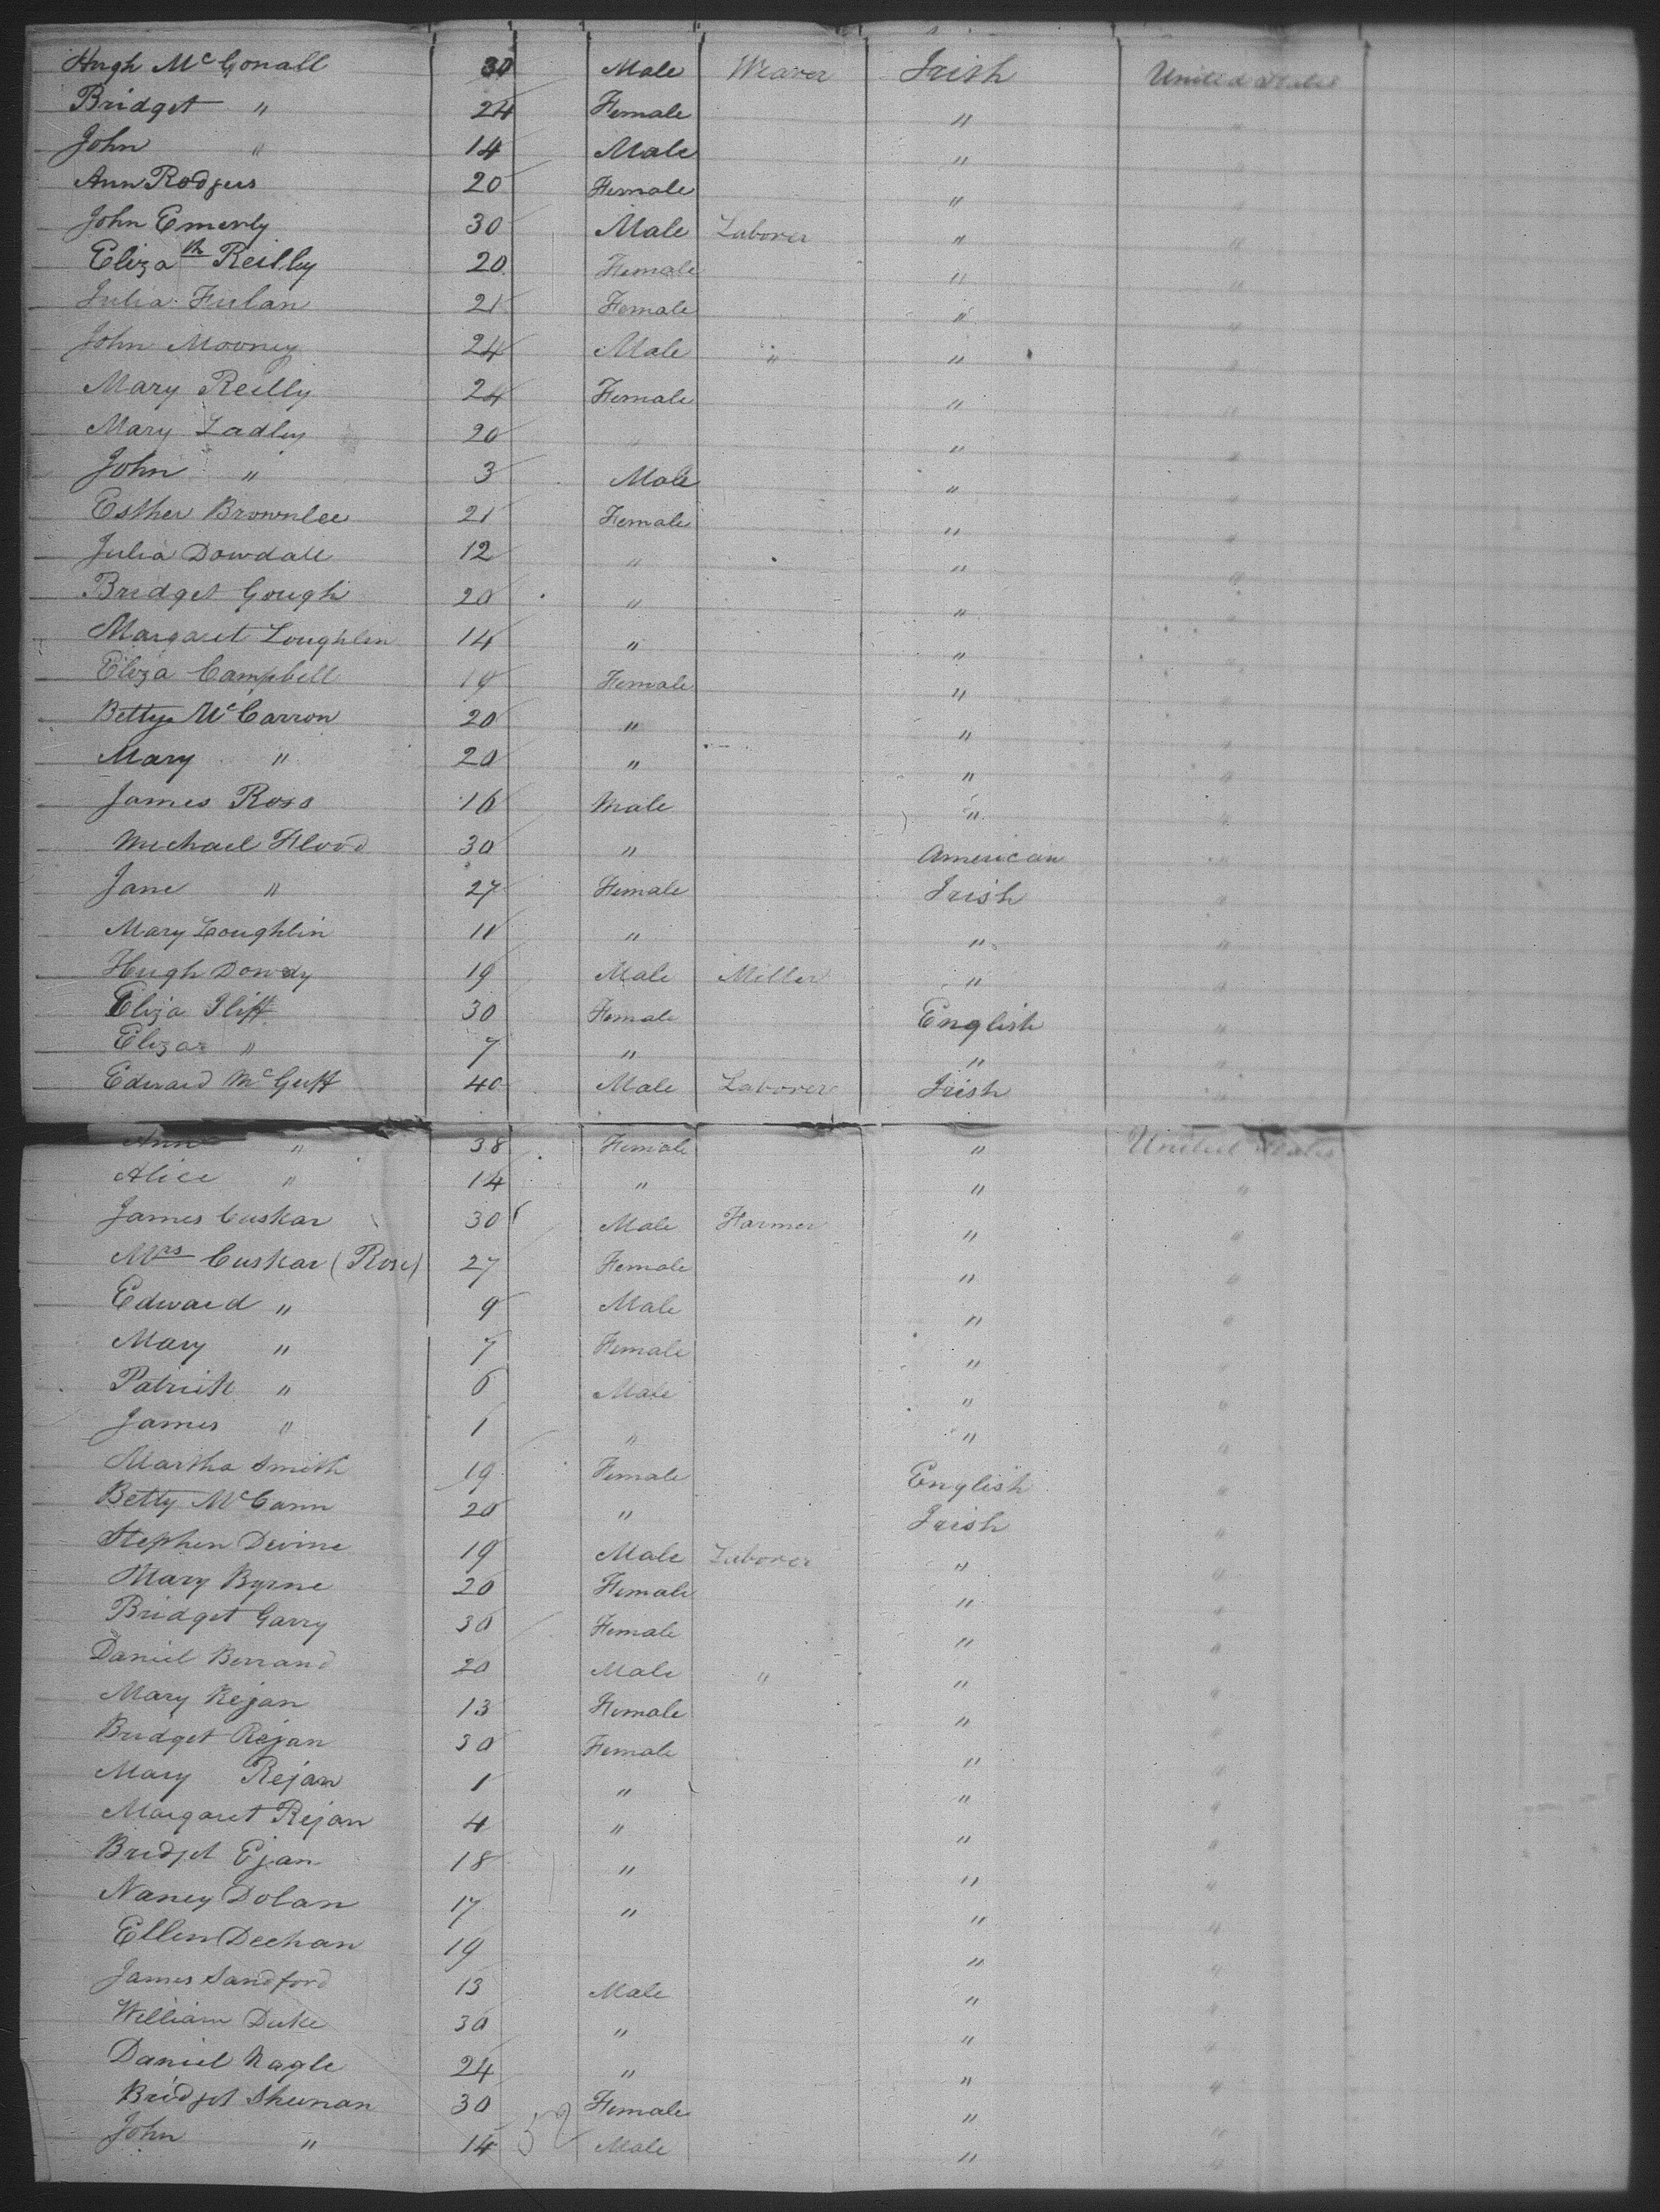 Hugh McGonall 30 Male Weaver Irish United States
Bridget " 24 Female " "
John " 14 Male " "
Ann Rodgers 20 Female " "
John Emerly 30 Male Laborer " "
Elizath Reilly 20 Female " "
Julia Fulan 21 Female " "
John Mooney 24 Male " " "
Mary Reilly 24 Female " "
Mary Ladley 20 " " "
John " 3 Male " "
Esther Brownlee 21 Female " "
Julia Dowdall 12 " " "
Bridget Gough 20 " " "
Margaret Loughlin 14 " " "
Eliza Campbell 19 Female " "
Betty McCarron 20 " " "
Mary " 20 " " "
James Ross 16 Male " "
Michael Flood 30 " American "
Jane " 27 Female Irish "
Mary Loughlin 11 " " "
Hugh Dowdy 19 Male Miller " "
Eliza Iliff 30 Female English "
Elizar " 7 " " "
Edward McGuff 40 Male Laborer Irish "
Ann " 38 Female " United States
Alice " 14 " " "
James Cuskar 30 Male Farmer " "
Mrs Cuskar (Rose) 27 Female " "
Edward " 9 Male " "
Mary " 7 Female " "
Patrick " 6 Male " "
James " 1 " " "
Martha Smith 19 Female English "
Betty McCann 20 " Irish "
Stephen Devine 19 Male Laborer " "
Mary Byrne 20 Female " "
Bridget Garry 30 Female " "
Daniel Berrand 20 Male " " "
Mary Rejan 13 Female " "
Bridget Rejan 30 Female " "
Mary Rejan 1 " " "
Margaret Rejan 4 " " "
Bridget Ejan 18 " " "
Nancy Dolan 17 " " "
Ellen Deehan 19 " "
James Sandford 13 Male " "
William Duke 30 " " "
Daniel Nagle 24 " " "
Bridget Sheenan 30 Female " "
John " 14 52 Male " "